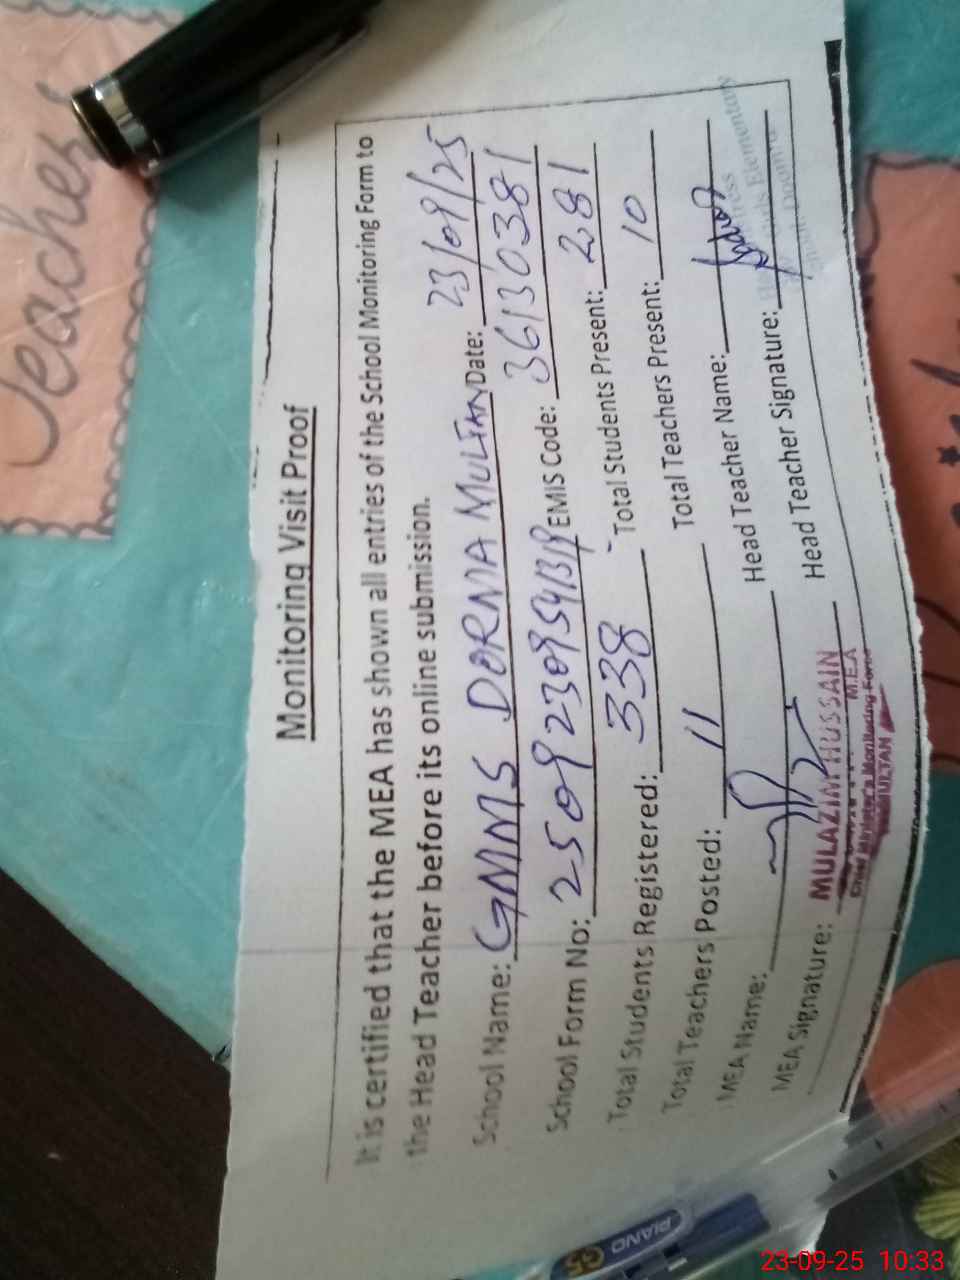 Teacher
Monitoring Visit Proof
It is certified that the MEA has shown all entries of the School Monitoring Form to
the Head Teacher before its online submission.
School Name: GMMS DORNA MULTAN Date: 23/09/25
School Form No: EMIS Code: 36130381
Total Students Registered: 338 Total Students Present: 281
Total Teachers Posted: 11 Total Teachers Present: 10
MEA Name: Head Teacher Name:
MEA Signature: Head Teacher Signature:
MULAZIM HUSSAIN
M.E.A
Chief Minister's Monitoring Force
MULTAN
Girls Elementary
PIANO
23-09-25 10:33